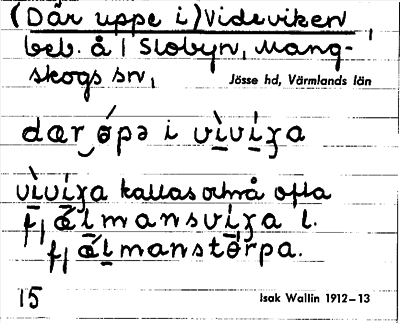 (Där uppe i) Videviken,
beb. å i Slobyn, Mang-
skogs sn,
Jösse hd, Värmlands län
dær ópə i vìvíʒa
vìvíʒa kallas också ofta
f| ælmansvíʒa l.
f| ælmanstórpa.
15
Isak Wallin 1912–13